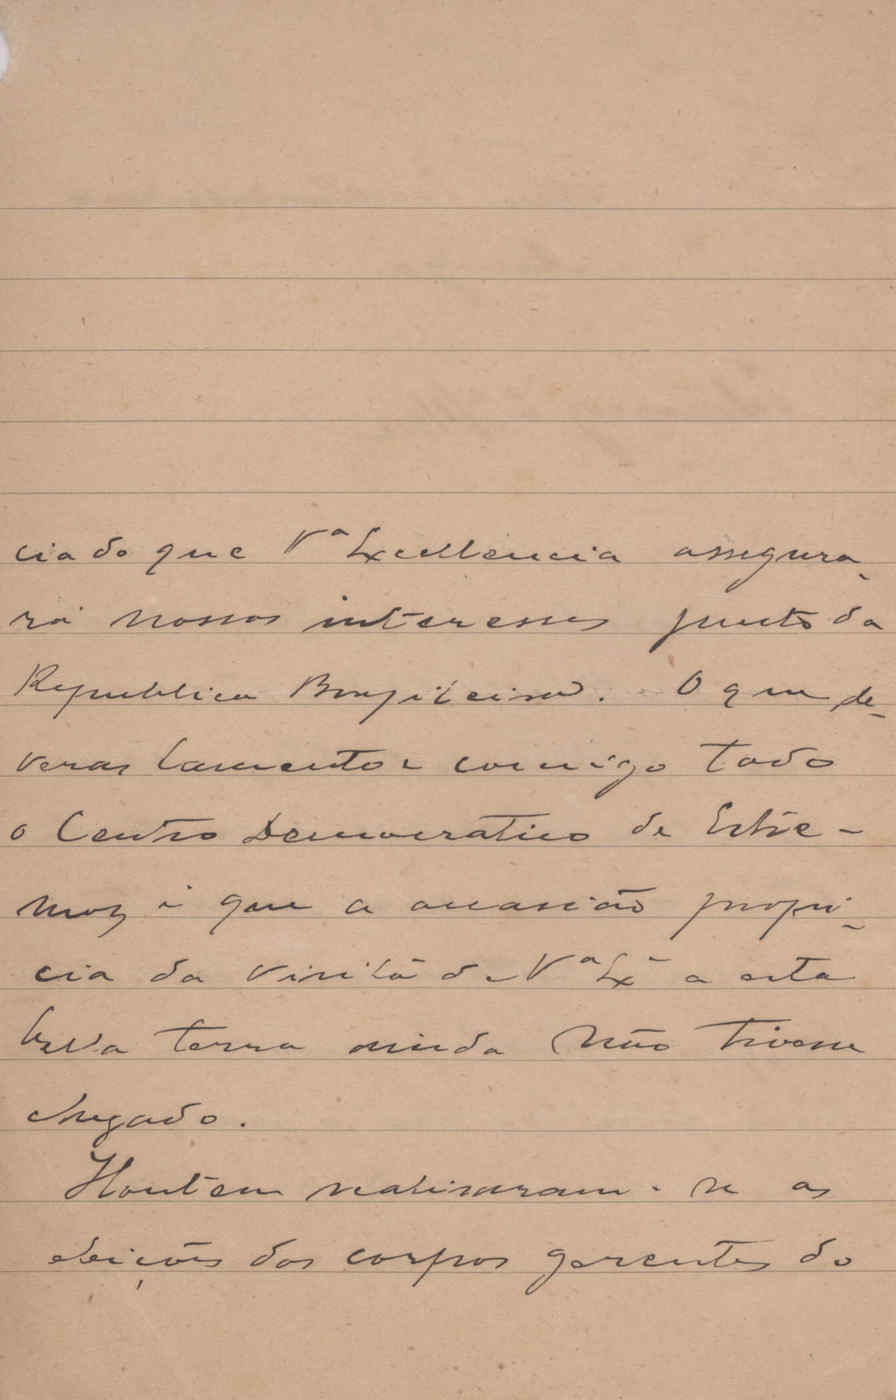 ciado que Vª Excellencia assegura-
rá nossos interesses junto da
Republica Brazileira. O que de-
veras lamento e comigo todo
o Centro Democratico de Extre-
moz é que a occasião propi-
cia da visita de Vª Exª a esta
bella terra ainda não tivesse
chegado.
Hontem realisaram-se as
eleições dos corpos gerentes do